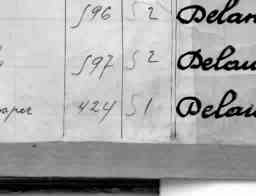 596 52 Delan
597 52 Delau
aper 424 51 Delau